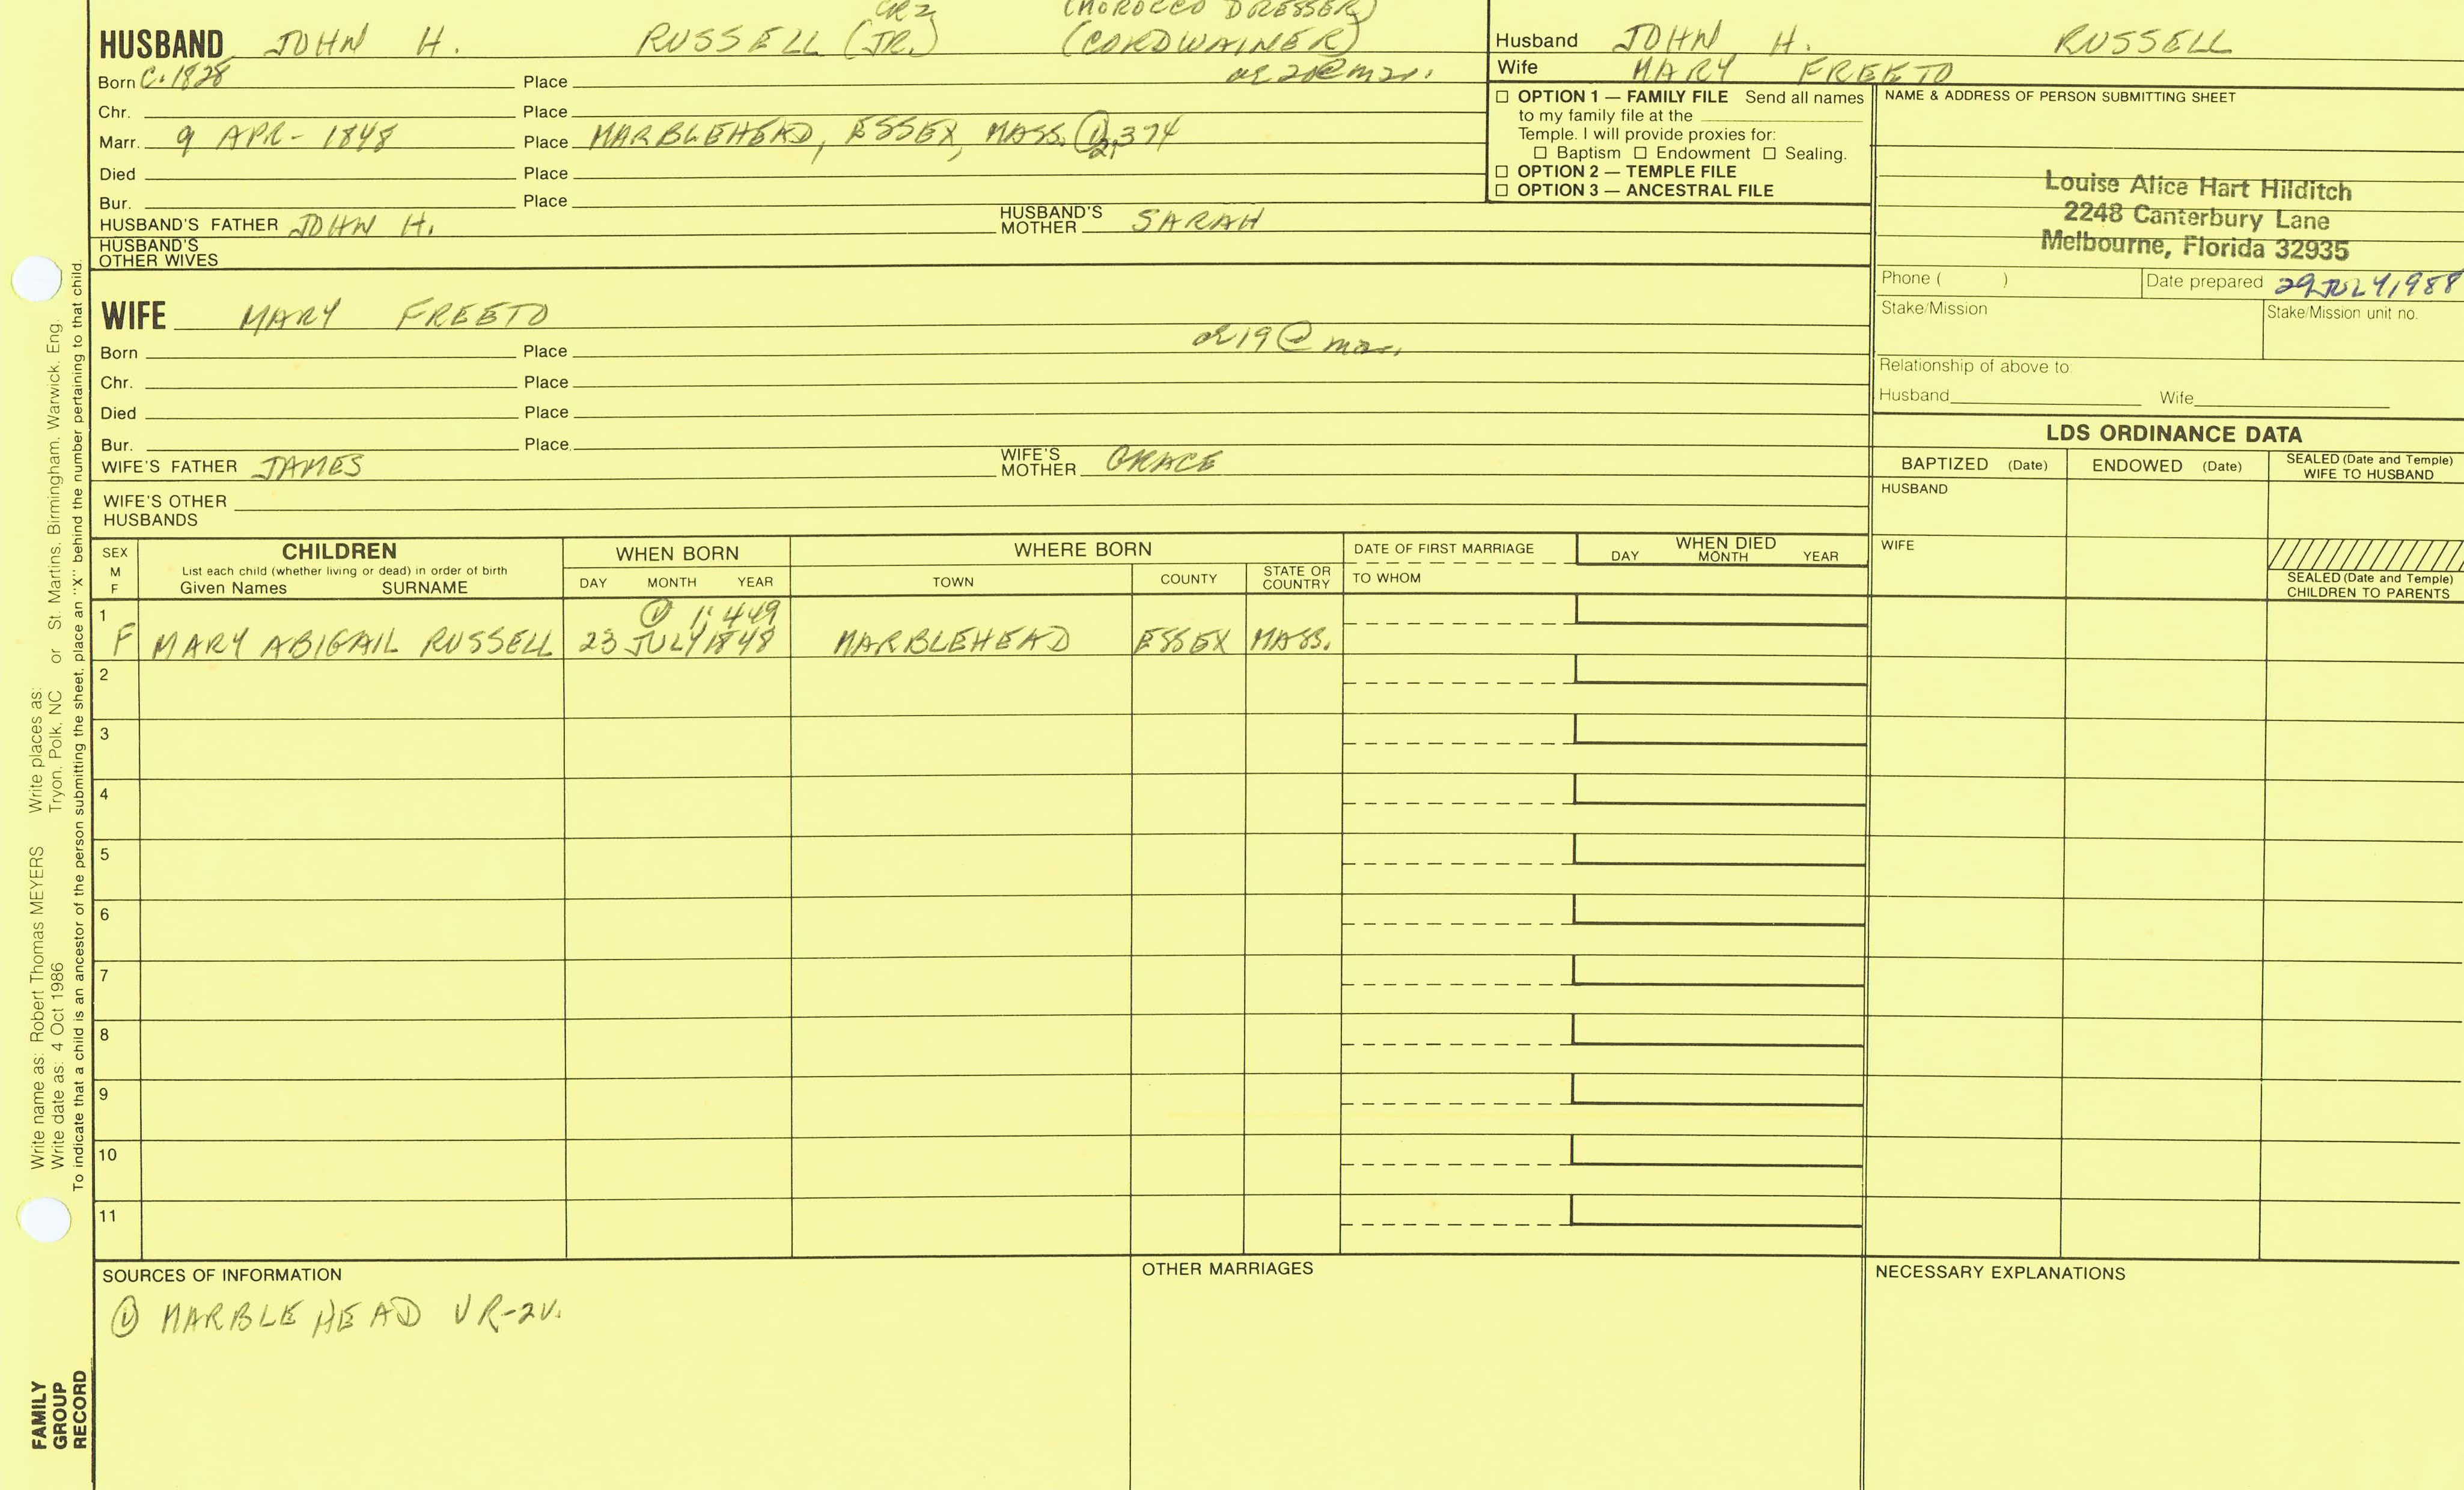 GR2 (MOROCCO DRESSER)
HUSBAND JOHN H. RUSSELL (JR.) (CORDWAINER)
Born C. 1828 Place ae 20 @ mar.
Chr. Place
Marr. 9 APR - 1848 Place MARBLEHEAD, ESSEX, MASS. ① 2,374
Died Place
Bur. Place
HUSBAND'S FATHER JOHN H. HUSBAND'S MOTHER SARAH
HUSBAND'S OTHER WIVES
WIFE MARY FREETO
Born Place ae 19 @ mar.
Chr. Place
Died Place
Bur. Place
WIFE'S FATHER JAMES WIFE'S MOTHER GRACE
WIFE'S OTHER HUSBANDS
Husband JOHN H. RUSSELL
Wife MARY FREETO
☐ OPTION 1 — FAMILY FILE Send all names
to my family file at the
Temple. I will provide proxies for:
☐ Baptism ☐ Endowment ☐ Sealing.
☐ OPTION 2 — TEMPLE FILE
☐ OPTION 3 — ANCESTRAL FILE
NAME & ADDRESS OF PERSON SUBMITTING SHEET
Louise Alice Hart Hilditch
2248 Canterbury Lane
Melbourne, Florida 32935
Phone ( ) Date prepared 29 JULY 1988
Stake/Mission Stake/Mission unit no.
Relationship of above to:
Husband Wife
LDS ORDINANCE DATA
BAPTIZED (Date) ENDOWED (Date) SEALED (Date and Temple) WIFE TO HUSBAND
HUSBAND
WIFE
SEALED (Date and Temple) CHILDREN TO PARENTS
SEX M F CHILDREN WHEN BORN WHERE BORN DATE OF FIRST MARRIAGE WHEN DIED
List each child (whether living or dead) in order of birth
Given Names SURNAME DAY MONTH YEAR TOWN COUNTY STATE OR COUNTRY TO WHOM DAY MONTH YEAR
1 ① 1:449
F MARY ABIGAIL RUSSELL 23 JULY 1848 MARBLEHEAD ESSEX MASS.
2
3
4
5
6
7
8
9
10
11
SOURCES OF INFORMATION
① MARBLEHEAD VR-2V.
OTHER MARRIAGES
NECESSARY EXPLANATIONS
Write name as: Robert Thomas MEYERS Write places as:
Write date as: 4 Oct 1986 Tryon, Polk, NC or St. Martins, Birmingham, Warwick, Eng.
To indicate that a child is an ancestor of the person submitting the sheet, place an "X" behind the number pertaining to that child.
FAMILY
GROUP
RECORD